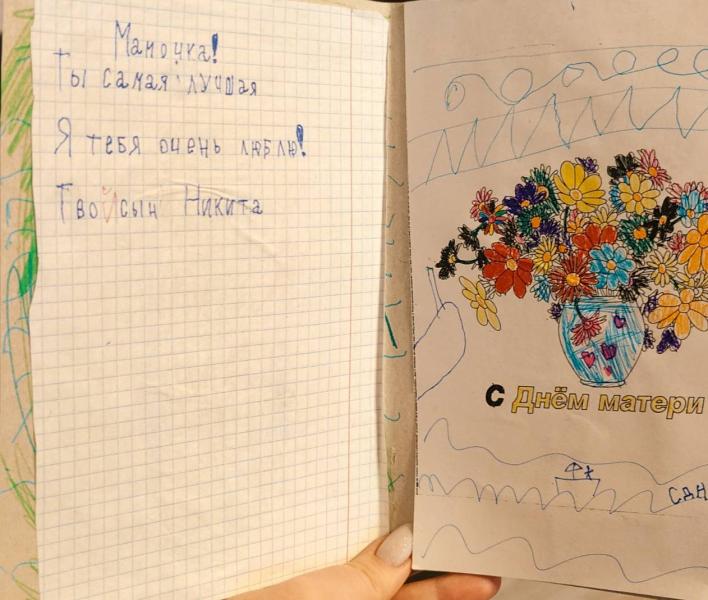 Мамочка!
Ты самая лучшая
Я тебя очень люблю!
Твой сын Никита
С Днём матери
СДН